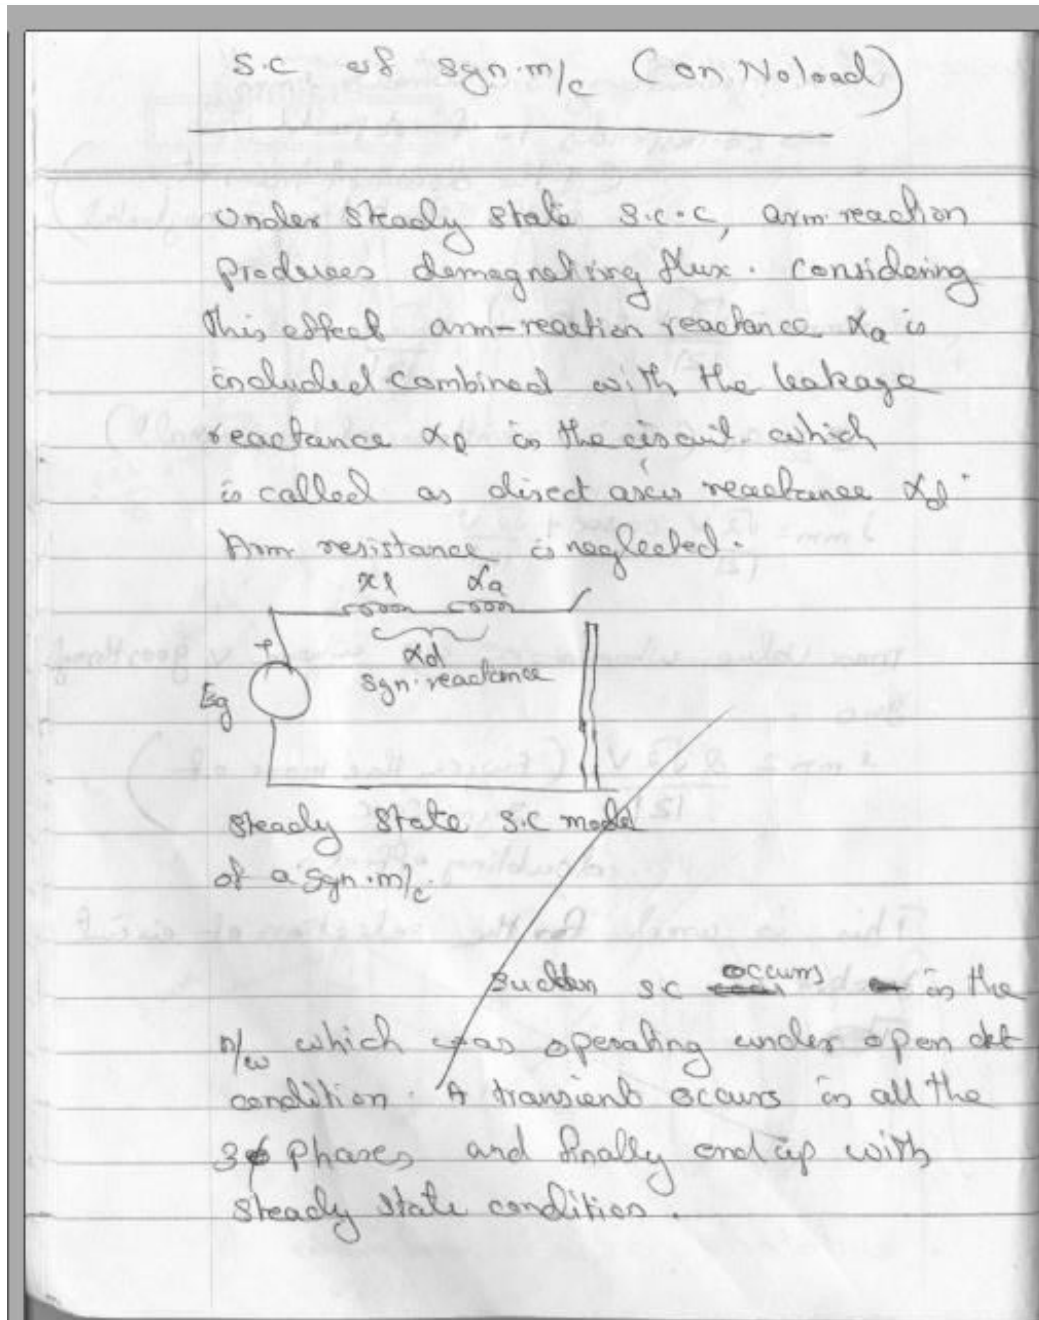 S.C of syn.m/c (on No load)
Under steady state s.c.c, arm reaction
produces demagnetising flux. Considering
this effect arm-reaction reactance Xa is
included combined with the leakage
reactance Xl in the circuit which
is called as direct axis reactance Xd.
Arm resistance is neglected.
Xl Xa
Xd
Syn.reactance
Eg
Steady state s.c model
of a syn.m/c.
Sudden sc occurs in the
n/w which was operating under open ckt
condition. A transient occurs in all the
3ϕ phases and finally end up with
steady state condition.